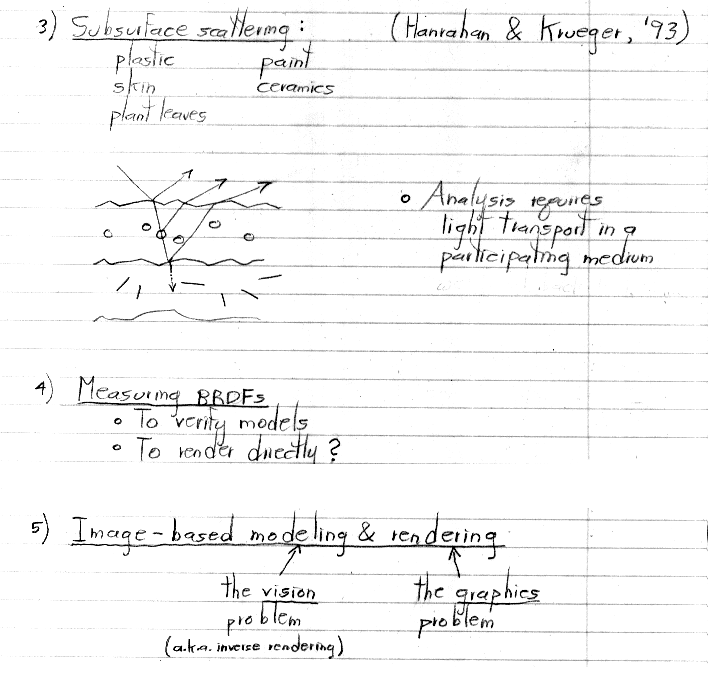 3) Subsurface scattering: (Hanrahan & Krueger, '93)
plastic paint
skin ceramics
plant leaves
• Analysis requires
light transport in a
participating medium
4) Measuring BRDFs
• To verify models
• To render directly?
5) Image-based modeling & rendering
the vision the graphics
problem problem
(a.k.a. inverse rendering)